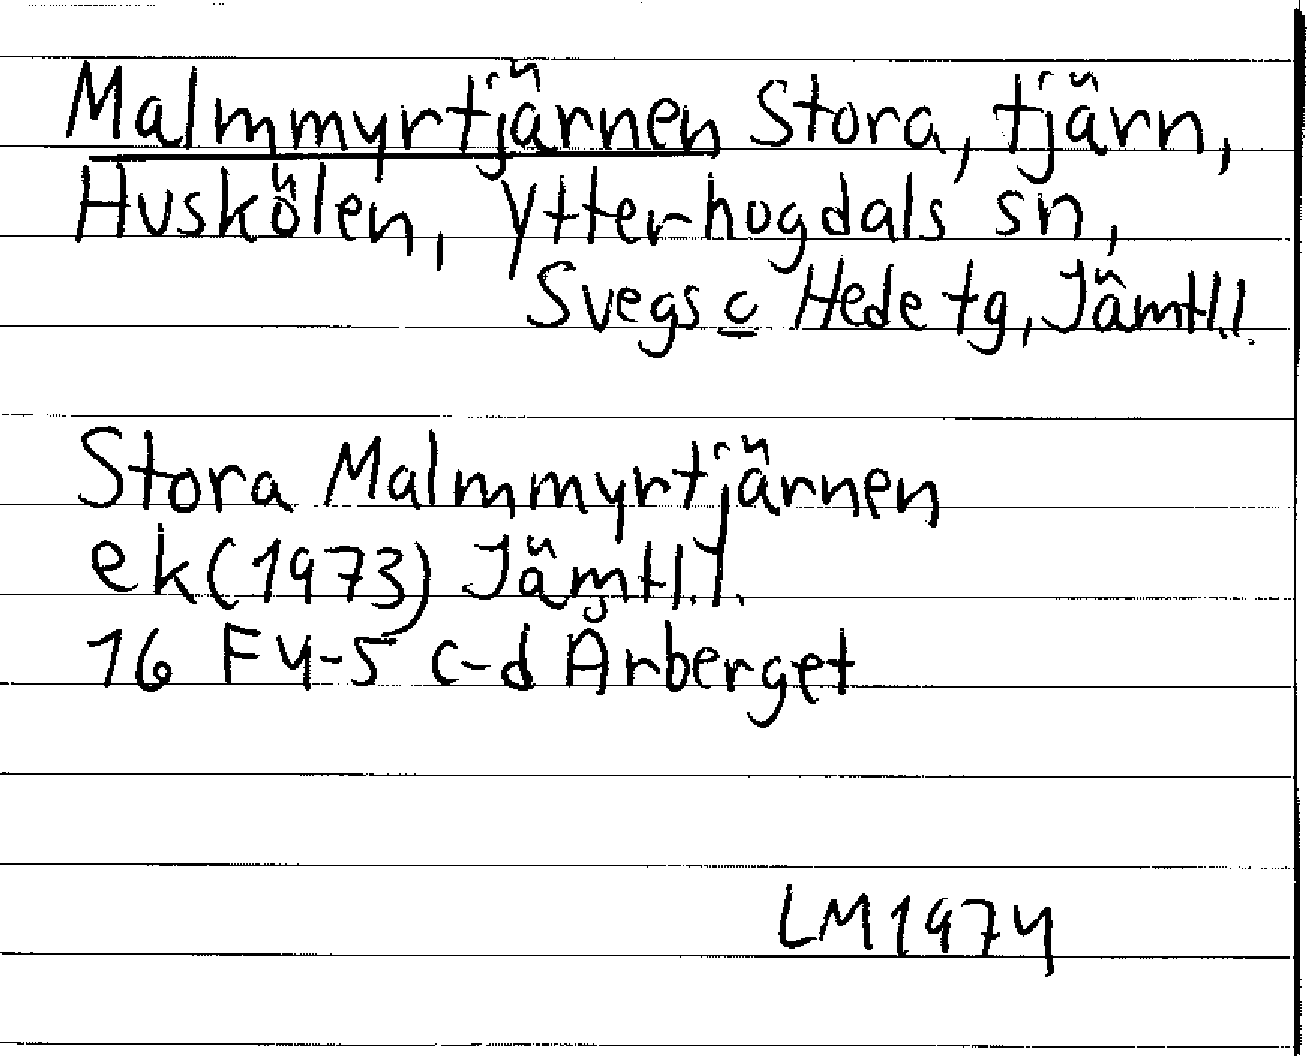 Malmmyrtjärnen Stora, tjärn,
Huskölen, Ytterhogdals sn,
Svegs c Hede tg, Jämtl.l.
Stora Malmmyrtjärnen
ek (1973) Jämtl.l.
16 F 4-5 c-d Årberget
LM 1974